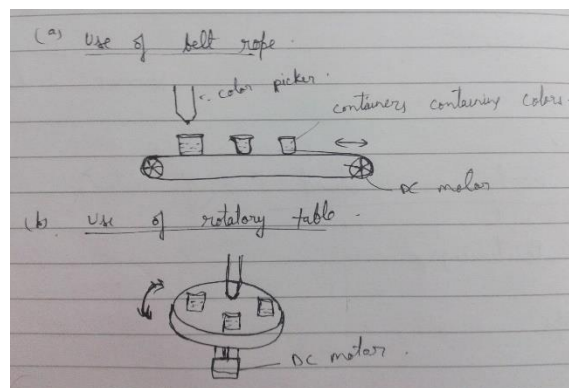 (a) Use of belt rope.
color picker.
containers containing colors.
DC motor
(b) Use of rotatory table.
DC motor.